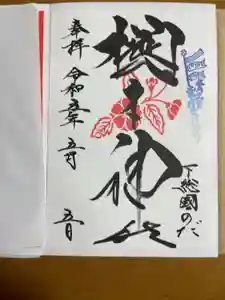 下総國のだ
櫻木神社
奉拝 令和五年 五月 五日